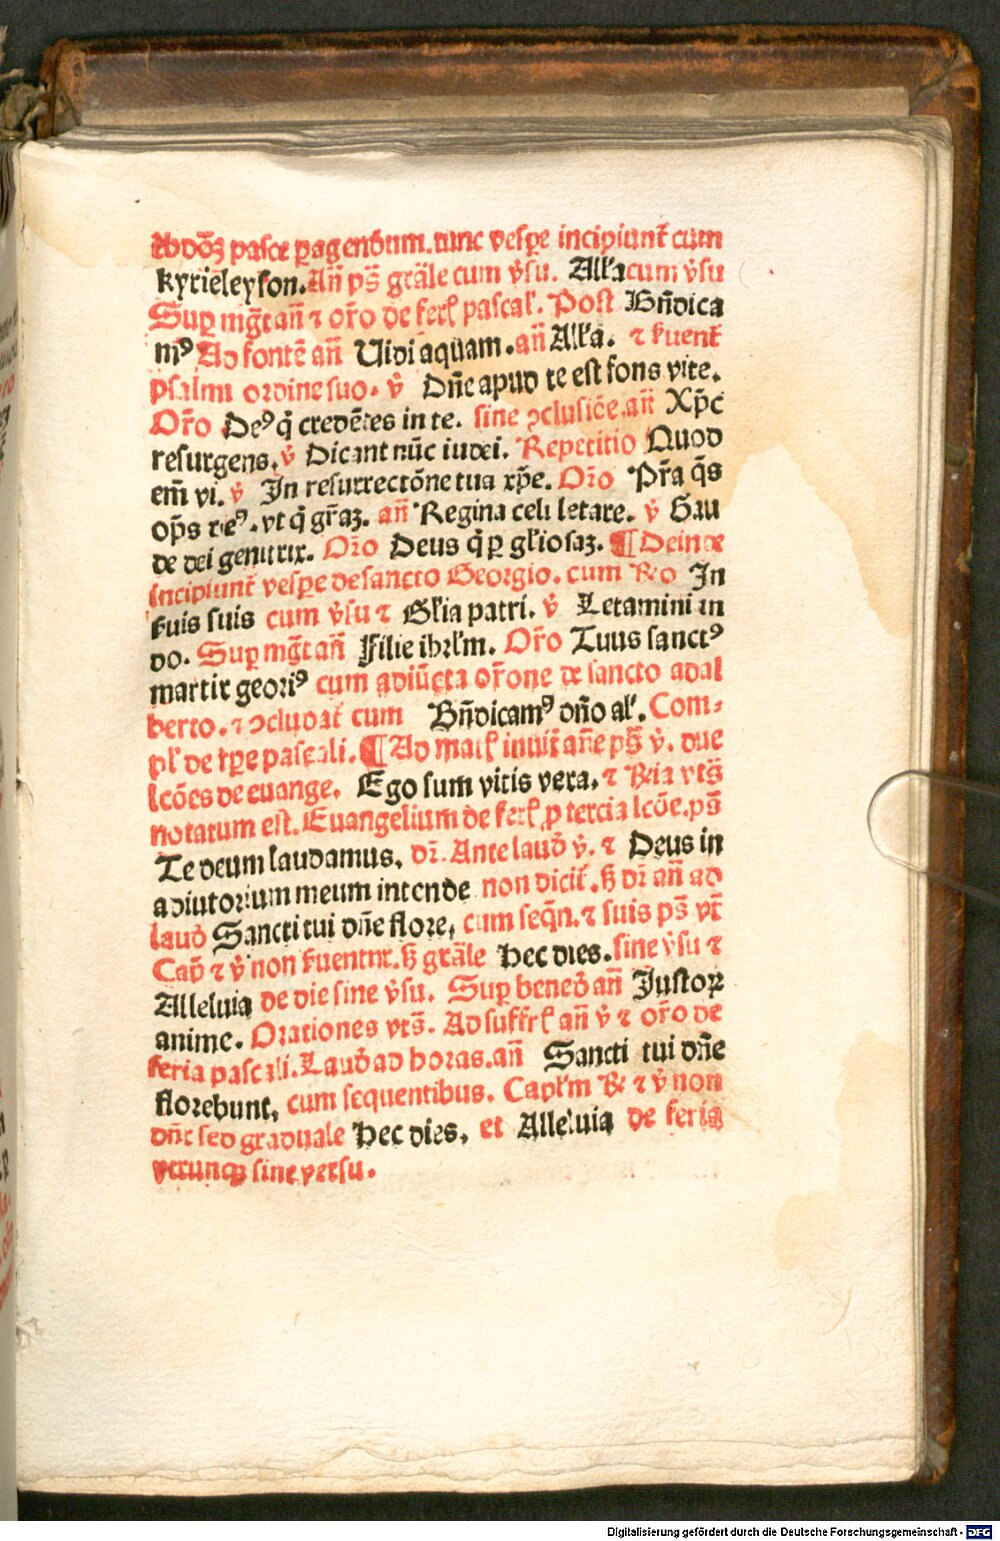 bdōꝫ pasce ꝑagendum. tunc vesꝑe incipiunt̄ cum
kyrieleyson. Añ ps̄ grāle cum v̄su. Alľa cum v̄su
Suꝑ mḡt añ ⁊ or̄o de ferľ pascaľ. Post Bn̄dica
mꝰ Ad fontē añ Uidi aquam. añ Alľa. ⁊ ẜuent̄
psalmi ordine suo. v̄ Dn̄e apud te est fons vite.
Or̄o Deꝰ q̄ credētes in te. sine ꝯclusiōe. añ Xp̄c
resurgens. v̄ Dicant nūc iudei. Repetitio Quod
em̄ vi. v̄ In resurrectōne tua xp̄e. Or̄o Pr̄a q̄s
op̄s deꝰ. vt q̄ gr̄aꝫ. añ Regina celi letare. v̄ Gau
de dei genitrix. Or̄o Deus q̄ ꝑ gľiosaꝫ. ¶ Deinde
incipiunt̄ vesꝑe de sancto Georgio. cum R̄o In
ẜuis suis cum v̄su ⁊ Gľia patri. v̄ Letamini in
do. Suꝑ mḡt añ Filie ihrľm. Or̄o Tuus sanctꝰ
martir georiꝰ cum adiūcta or̄one de sancto adal
berto. ⁊ ꝯcludat̄ cum Bn̄dicamꝰ dn̄o aľ. Com⸗
pľ de tꝑe pascali. ¶ Ad matľ inuit̄ añe ps̄ v̄. due
lcōes de euange. Ego sum vitis vera. ⁊ R̄ia vts̄
notatum est. Euangelium de ferľ ꝓ tercia lcōe. ps̄
Te deum laudamus. dr̄. Ante laud̄ v̄. ⁊ Deus in
adiutorium meum intende non dicit̄. ẜ dr̄ añ ad
laud̄ Sancti tui dn̄e flore, cum seq̄n. ⁊ suis ps̄ vt̄
Cap̄ ⁊ v̄ non ẜuentur. ẜ grāle Hec dies. sine v̄su ⁊
Alleluia de die sine v̄su. Suꝑ bened̄ añ Iustoꝝ
anime. Orationes vts̄. Ad suffrľ añ v̄ ⁊ or̄o de
feria pascali. Laud̄ ad horas. añ Sancti tui dn̄e
florebunt, cum sequentibus. Capľm R̄ ⁊ v̄ non
dn̄t sed graduale Hec dies, et Alleluia de feria
vtrunqꝫ sine versu.
Digitalisierung gefördert durch die Deutsche Forschungsgemeinschaft - DFG